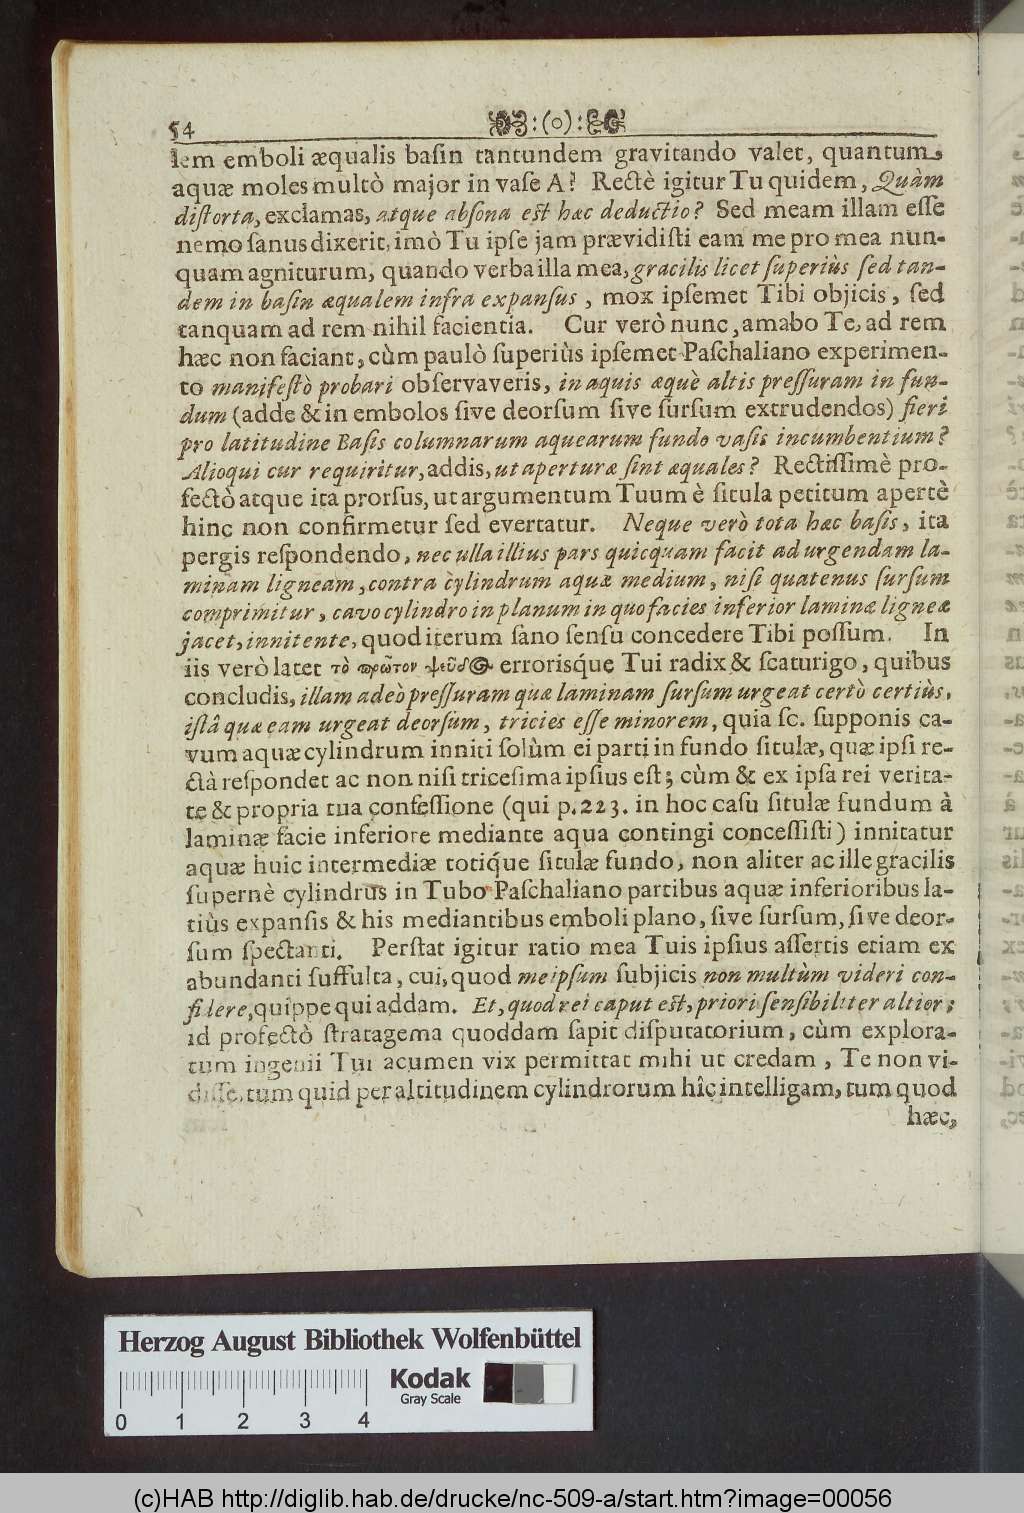 54 :(o):
lem emboli æqualis baſin tantundem gravitando valet, quantum
aquæ moles multò major in vaſe A? Rectè igitur Tu quidem, Quàm
diſtorta, exclamas, atque abſona eſt hæc deductio? Sed meam illam eſſe
nemo ſanus dixerit, imò Tu ipſe jam prævidiſti eam me pro mea nun-
quam agniturum, quando verba illa mea, gracilis licet ſuperiùs ſed tan-
dem in baſin æqualem infra expanſus, mox ipſemet Tibi objicis, ſed
tanquam ad rem nihil facientia. Cur verò nunc, amabo Te, ad rem
hæc non faciant, cùm paulò ſuperiùs ipſemet Paſchaliano experimen-
to manifeſtò probari obſervaveris, in aquis æquè altis preſſuram in fun-
dum (adde & in embolos ſive deorſum ſive ſurſum extrudendos) fieri
pro latitudine Baſis columnarum aquearum fundo vaſis incumbentium?
Alioqui cur requiritur, addis, ut aperturæ ſint æquales? Rectiſſimè pro-
fectò atque ita prorſus, ut argumentum Tuum è ſitula petitum apertè
hinc non confirmetur ſed evertatur. Neque verò tota hæc baſis, ita
pergis reſpondendo, nec ulla illius pars quicquam facit ad urgendam la-
minam ligneam, contra cylindrum aquæ medium, niſi quatenus ſurſum
comprimitur, cavo cylindro in planum in quo facies inferior laminæ ligneæ
jacet, innitente, quod iterum ſano ſenſu concedere Tibi poſſum. In
iis verò latet τὸ πρῶτον ψεῦδος errorisq́ue Tui radix & ſcaturigo, quibus
concludis, illam adeò preſſuram quæ laminam ſurſum urgeat certò certiùs,
iſtâ quæ eam urgeat deorſum, tricies eſſe minorem, quia ſc. ſupponis ca-
vum aquæ cylindrum inniti ſolùm ei parti in fundo ſitulæ, quæ ipſi re-
ctà reſpondet ac non niſi triceſima ipſius eſt; cùm & ex ipſa rei verita-
te & propria tua confeſſione (qui p. 223. in hoc caſu ſitulæ fundum à
laminæ facie inferiore mediante aqua contingi conceſſiſti) innitatur
aquæ huic intermediæ totiq́ue ſitulæ fundo, non aliter ac ille gracilis
ſupernè cylindrus in Tubo Paſchaliano partibus aquæ inferioribus la-
tiùs expanſis & his mediantibus emboli plano, ſive ſurſum, ſive deor-
ſum ſpectanti. Perſtat igitur ratio mea Tuis ipſius aſſertis etiam ex
abundanti ſuffulta, cui, quod meipſum ſubjicis non multùm videri con-
fidere, quippe qui addam. Et, quod rei caput eſt, priori ſenſibiliter altior;
id profectò ſtratagema quoddam ſapit diſputatorium, cùm explora-
tum ingenii Tui acumen vix permittat mihi ut credam, Te non vi-
diſſe, tum quid per altitudinem cylindrorum hîc intelligam, tum quod
hæc,
Herzog August Bibliothek Wolfenbüttel
Kodak
Gray Scale
0 1 2 3 4
(c)HAB http://diglib.hab.de/drucke/nc-509-a/start.htm?image=00056